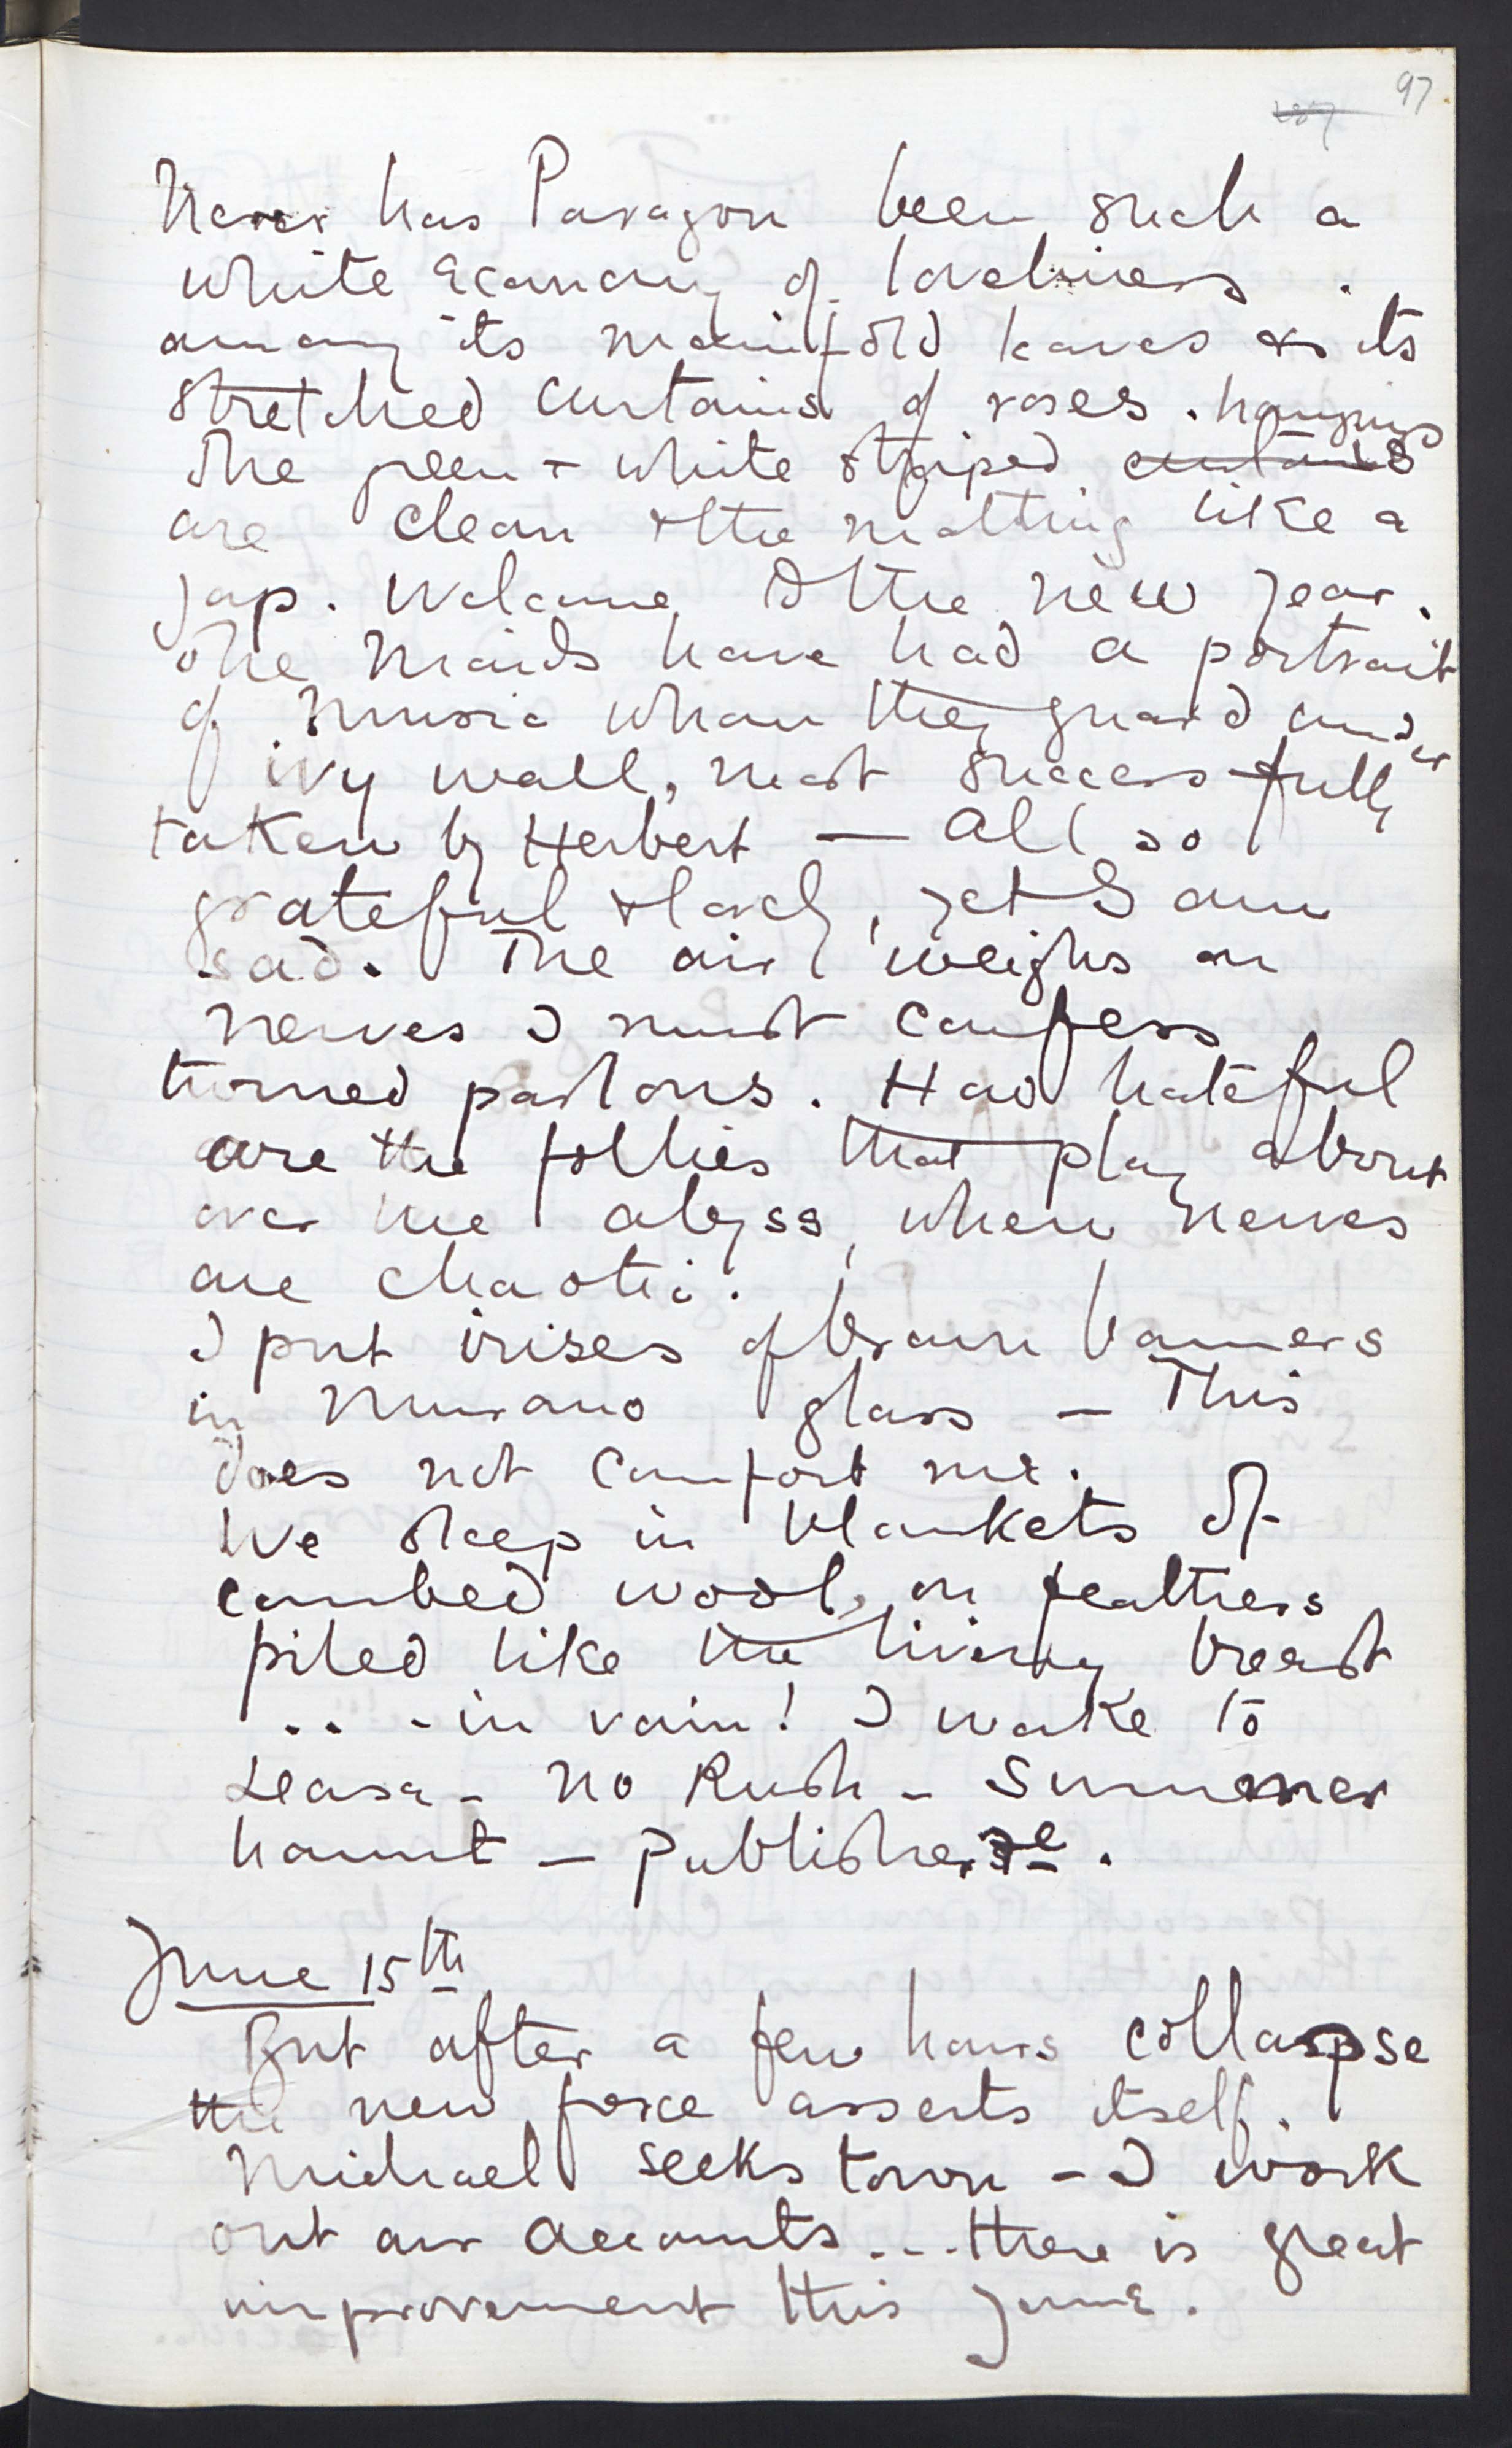 97
Never has Paragon been such a
white economy of loveliness .
among its manifold leaves & its
stretched curtains of roses . hangings
The green & white striped curtains
are clean & the matting like a
Jap. Welcome to the new year.
The Maids have had a portrait
of Music whom they guard under
ivy wall, most successfully
taken by Herbert — All so
grateful & lovely, yet I am
sad. The air weighs on
nerves I must confess
turned parlous. How hateful
are the follies that play about
over the abyss, when nerves
are chaotic.
I put irises of brown banners
in Murano glass – This
does not comfort me.
We sleep in blankets of
combed wool, on feathers
piled like the living breast
... in vain! I wake to
Lease – No Rush – Summer
haunt – Publisher
June 15th
But after a few hours collapse
the new force asserts itself.
Michael seeks town – I work
out our accounts... there is great
improvement this June.